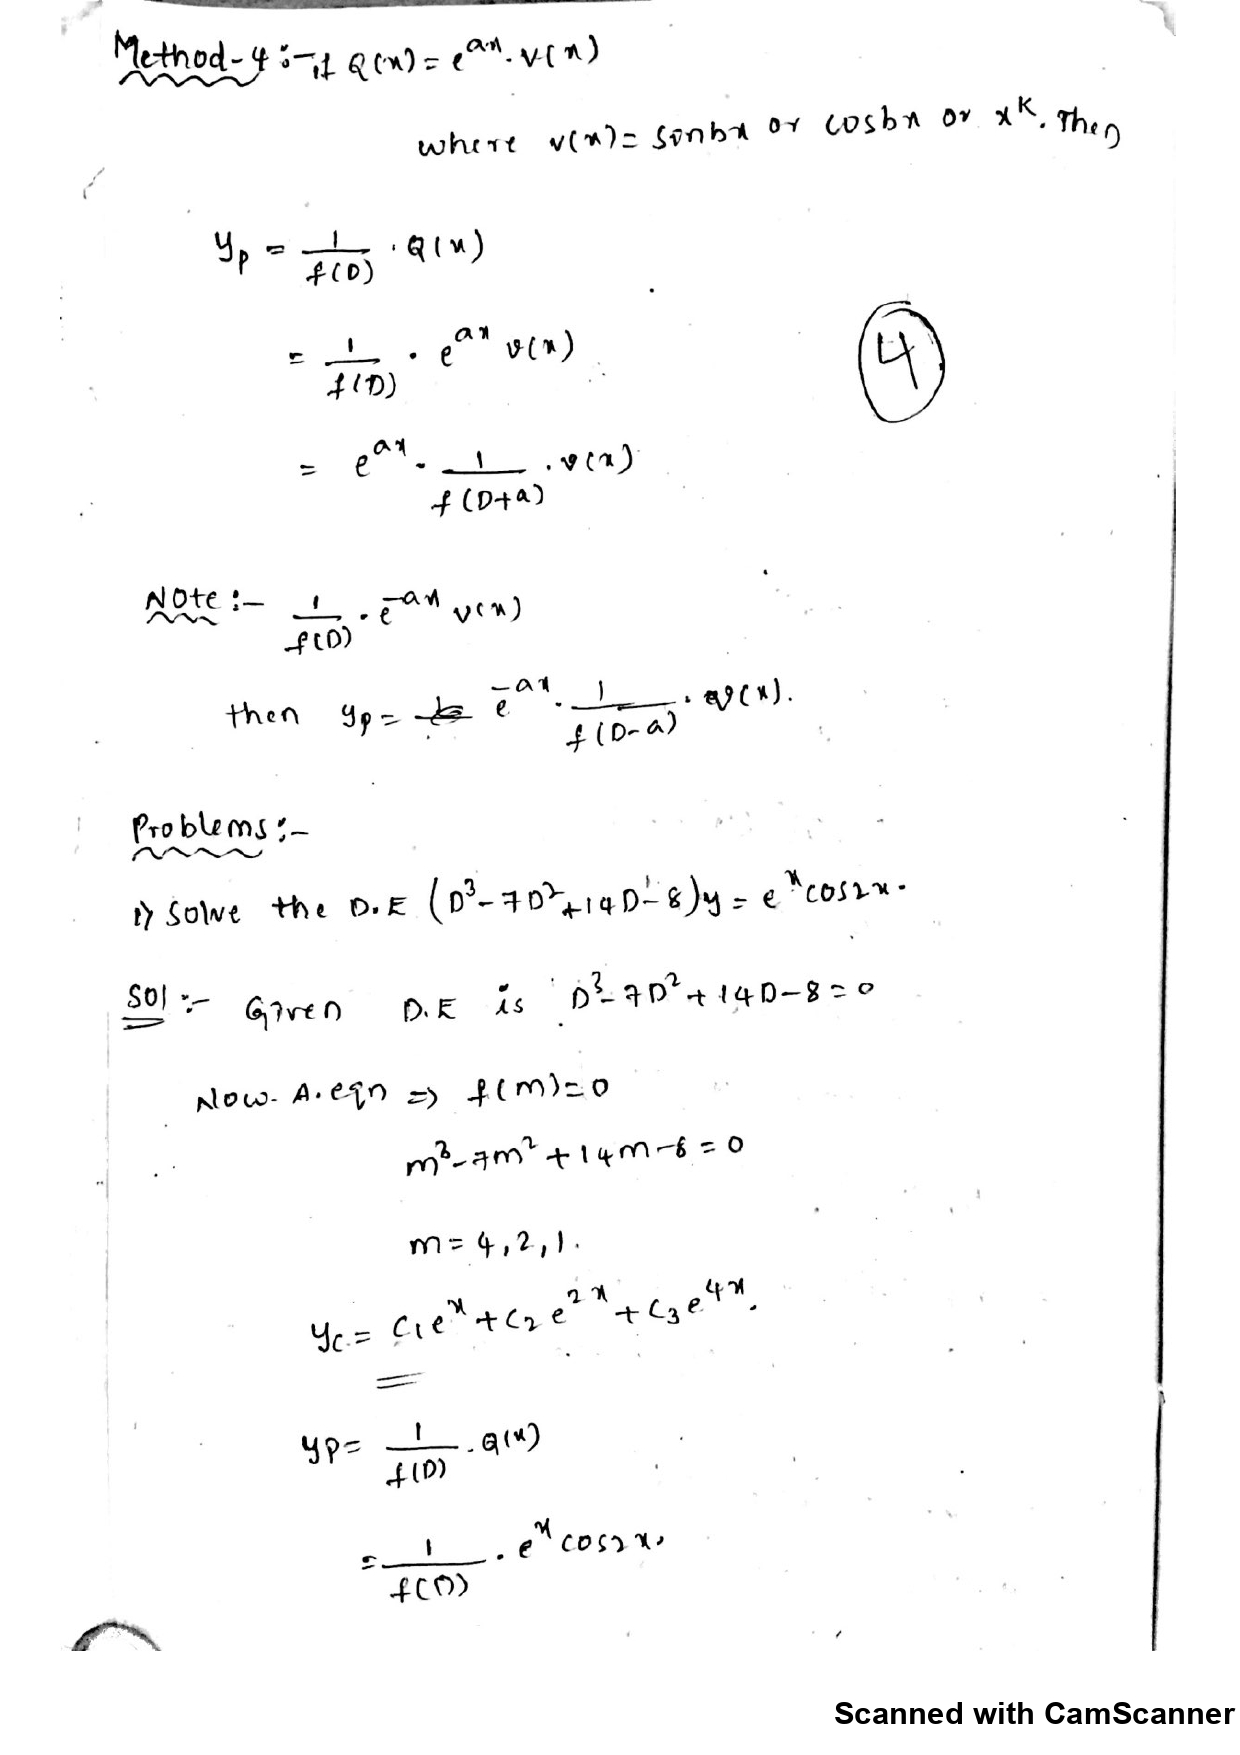 Method-4 :- if Q(x) = e^{ax}. V(x)
where v(x) = sinbx or cosbx or x^K. Then
y_p = 1/f(D) . Q(x)
= 1/f(D) . e^{ax} v(x)
4
= e^{ax} . 1/f(D+a) . v(x)
Note :- 1/f(D) . e^{-ax} v(x)
then y_p = e^{-ax} . 1/f(D-a) . v(x).
Problems :-
1) Solve the D.E (D^3 - 7D^2 + 14D - 8)y = e^x cos2x.
Sol :- Given D.E is D^3 - 7D^2 + 14D - 8 = 0
Now. A. eqn => f(m) = 0
m^3 - 7m^2 + 14m - 8 = 0
m = 4, 2, 1.
y_c = c_1 e^x + c_2 e^{2x} + c_3 e^{4x}.
y_p = 1/f(D) . Q(x)
= 1/f(D) . e^x cos2x.
Scanned with CamScanner